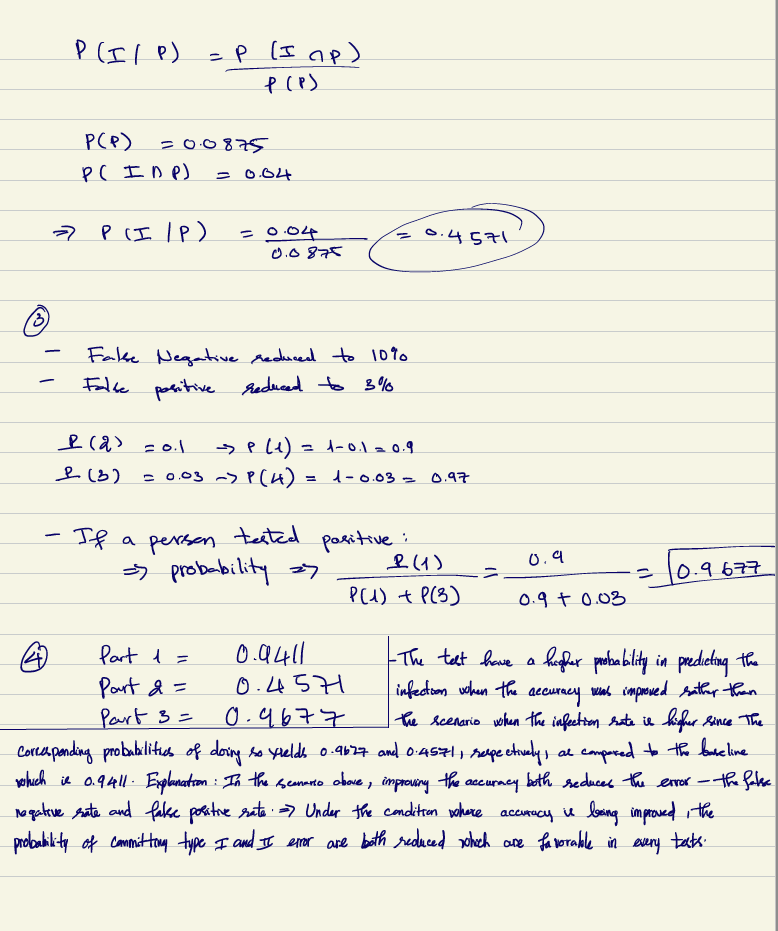 P(I/P) = P(I∩P)
P(P)
P(P) = 0.0875
P(I∩P) = 0.04
⇒ P(I|P) = 0.04 / 0.0875 = 0.4571
③
- False Negative reduced to 10%
- False positive reduced to 3%
P(2) = 0.1 → P(1) = 1-0.1 = 0.9
P(3) = 0.03 → P(4) = 1-0.03 = 0.97
- If a person tested positive:
⇒ probability ⇒ P(1) / P(1) + P(3) = 0.9 / 0.9 + 0.03 = 0.9677
④ Part 1 = 0.9411
Part 2 = 0.4571
Part 3 = 0.9677
- The test have a higher probability in predicting the
infection when the accuracy was improved rather than
the scenario when the infection rate is higher since the
corresponding probabilities of doing so yields 0.9677 and 0.4571, respectively, as compared to the baseline
which is 0.9411. Explanation: In the scenario above, improving the accuracy both reduces the error - the false
negative rate and false positive rate. ⇒ Under the condition where accuracy is being improved, the
probability of committing type I and II error are both reduced which are favorable in every tests.